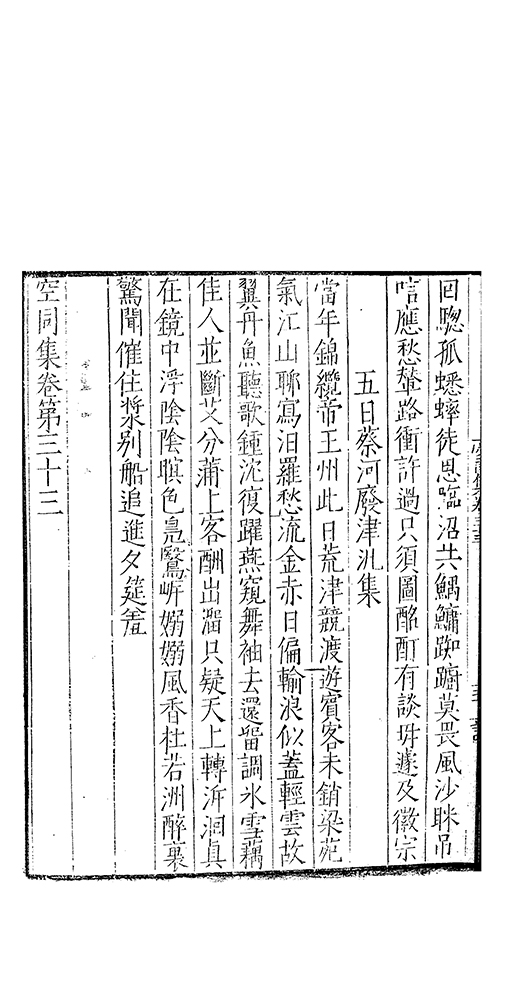 回騘孤蟋蟀徒思臨沼共鰅鱅踟躕莫畏風沙眯吊
唁應愁輦路衝許過只須圖酩酊有談毋遽及徽宗
五日蔡河廢津汎集
當年錦纜帝王州此日荒津競渡遊賓客未銷梁苑
氣江山聊寫汨羅愁流金赤日偏輸浪似蓋輕雲故
翼丹魚聽歌鍾沈復躍燕窺舞袖去還留調氷雪藕
佳人並斷艾分蒲上客酬出溜只疑天上轉泝洄真
在鏡中浮陰陰暝色鳧鷖㟁嫋嫋風香杜若洲醉裏
驚聞催住槳別船追進夕筵羞
空同集卷第三十三